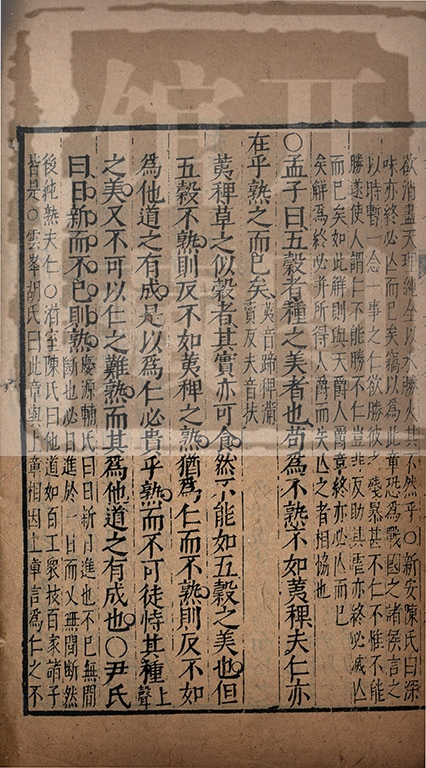 欲消盡天理純全以水勝火其不然乎○新安陳氏曰深
味亦終必亡而已矣竊以為此章恐為戰國之諸侯言之
以時暫一念一事之仁欲勝彼之殘暴甚不仁不惟不能
勝遂使人謂仁不能勝不仁豈非反助其虐亦終必滅亡
而已矣如此解則與天爵人爵章終亦必亡而已
矣解為終必并所得人爵而失亡之者相協也
○孟子曰五穀者種之美者也苟為不熟不如荑稗夫仁亦
在乎熟之而已矣荑音蹄稗蒲賣反夫音扶
荑稗草之似穀者其實亦可食然不能如五穀之美也但
五穀不熟則反不如荑稗之熟猶為仁而不熟則反不如
為他道之有成是以為仁必貴乎熟而不可徒恃其種上聲
之美又不可以仁之難熟而甘為他道之有成也○尹氏
曰日新而不已則熟慶源輔氏曰日新日進也不已無間斷也必日進於一日而又無間斷然
後純熟夫仁○潛室陳氏曰他道如百工衆技百家諸子
皆是○雲峯胡氏曰此章與上章相因上章言為仁之不